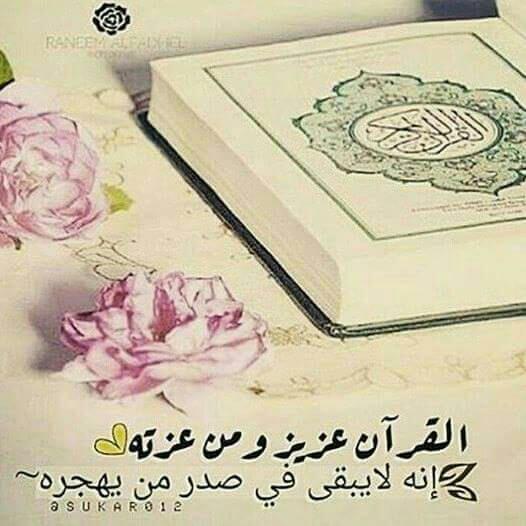 RANEEM ALFADHEL
القرآن الكريم
القرآن عزيز ومن عزته
إنه لايبقى في صدر من يهجره~
@SUKAR012